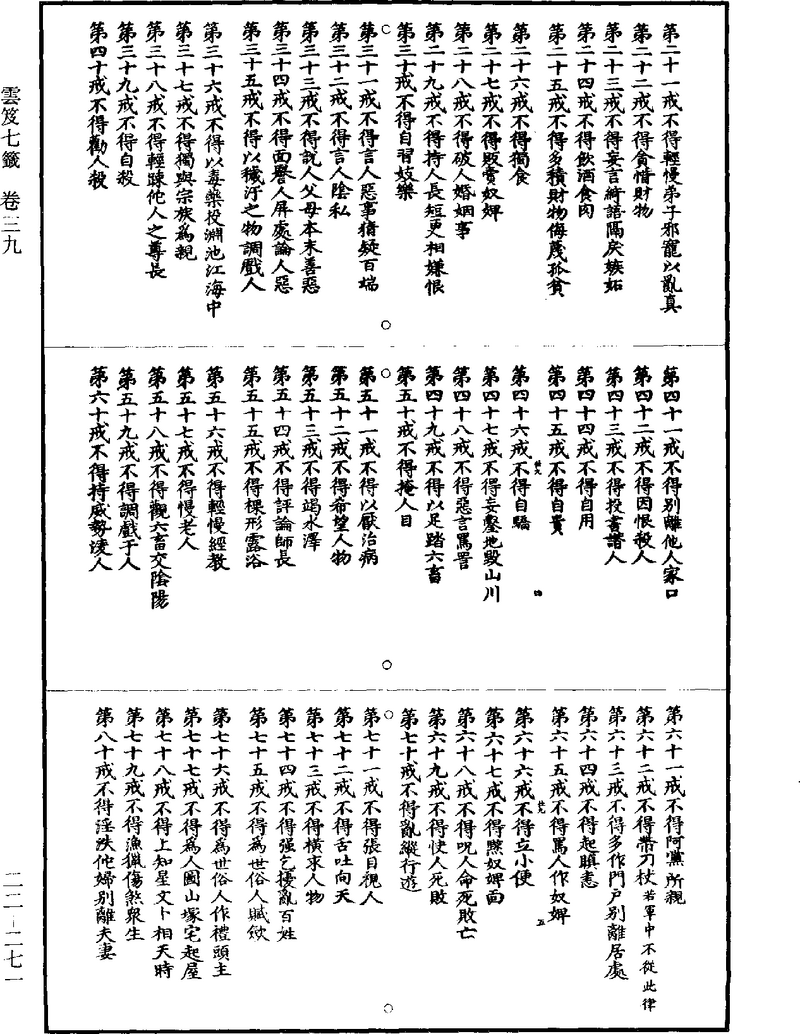 雲笈七籤 卷三九
二二—二七一
第二十一戒不得輕慢弟子邪寵以亂真
第二十二戒不得貪惜財物
第二十三戒不得妄言綺語隔戾嫉妬
第二十四戒不得飲酒食肉
第二十五戒不得多積財物侮蔑孤貧
第二十六戒不得獨食
第二十七戒不得販賣奴婢
第二十八戒不得破人婚姻事
第二十九戒不得持人長短更相嫌恨
第三十戒不得自習妓樂
第三十一戒不得言人惡事猜疑百端
第三十二戒不得言人陰私
第三十三戒不得說人父母本末善惡
第三十四戒不得面譽人屏處論人惡
第三十五戒不得以穢汙之物調戲人
第三十六戒不得以毒藥投淵池江海中
第三十七戒不得獨與宗族為親
第三十八戒不得輕踈他人之尊長
第三十九戒不得自殺
第四十戒不得勸人殺
第四十一戒不得別離他人家口
第四十二戒不得因恨殺人
第四十三戒不得投書譖人
第四十四戒不得自用
第四十五戒不得自貴
第四十六戒不得自驕
四
第四十七戒不得妄鑿地毀山川
第四十八戒不得惡言罵詈
第四十九戒不得以足踏六畜
第五十戒不得掩人目
第五十一戒不得以厭治病
第五十二戒不得希望人物
第五十三戒不得竭水澤
第五十四戒不得評論師長
第五十五戒不得裸形露浴
第五十六戒不得輕慢經教
第五十七戒不得慢老人
第五十八戒不得觀六畜交陰陽
第五十九戒不得調戲于人
第六十戒不得持威勢凌人
第六十一戒不得阿黨所親
第六十二戒不得帶刀杖若軍中不從此律
第六十三戒不得多作門戶別離居處
第六十四戒不得起瞋恚
第六十五戒不得罵人作奴婢
第六十六戒不得立小便
五
第六十七戒不得黥奴婢面
第六十八戒不得呪人命死敗亡
第六十九戒不得使人死敗
第七十戒不得亂縱行遊
第七十一戒不得張目視人
第七十二戒不得舌吐向天
第七十三戒不得橫求人物
第七十四戒不得强乞擾亂百姓
第七十五戒不得為世俗人賦斂
第七十六戒不得為世俗人作禮頭主
第七十七戒不得為人圖山塚宅起屋
第七十八戒不得上知星文卜相天時
第七十九戒不得漁獵傷煞眾生
第八十戒不得淫泆他婦別離夫妻